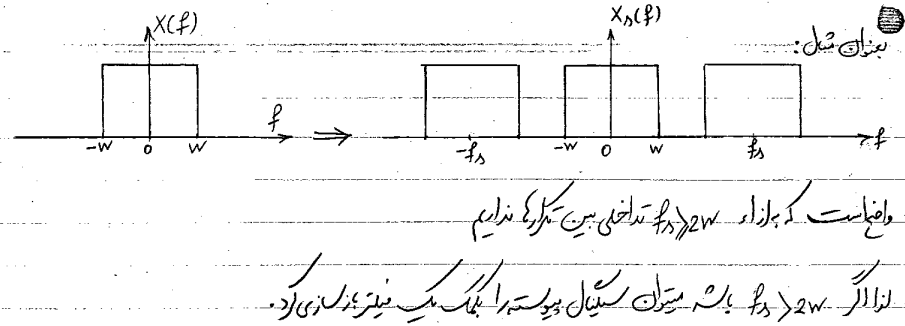 بعنوان مثال:
X(f)
-W 0 W f
⇒
Xs(f)
-fs -W 0 W fs f
واضح است که به ازاء fs≥2W تداخلی بین تکرارها نداریم
لذا اگر fs>2W باشد میتوان سیگنال پیوسته را بکمک یک فیلتر بازسازی کرد.